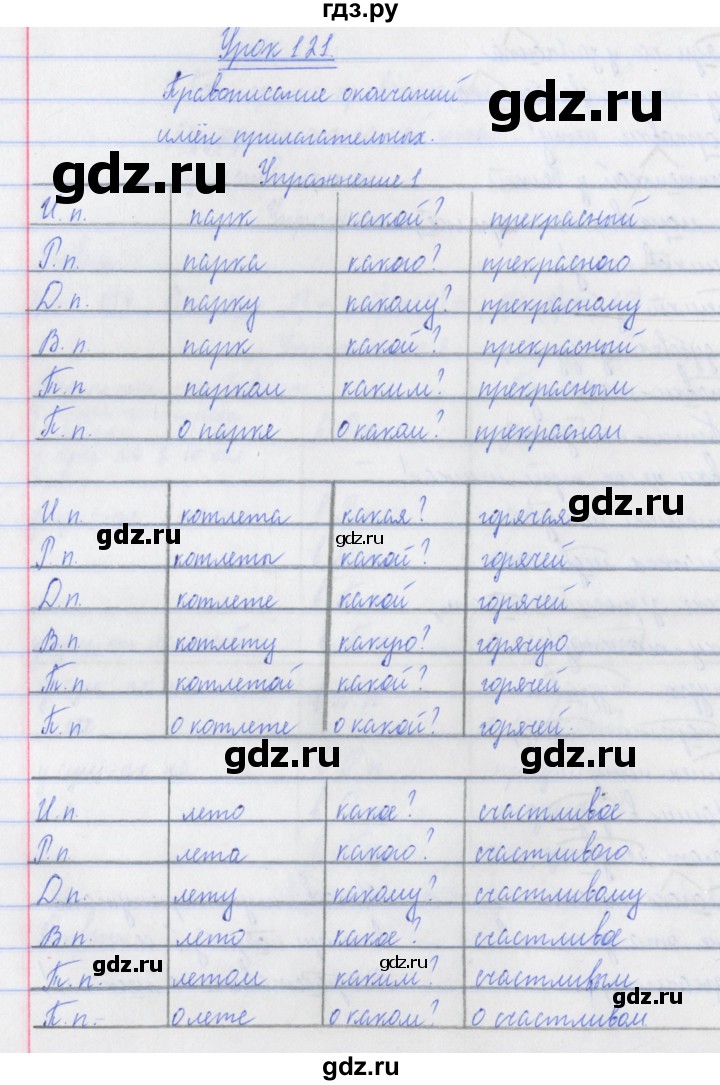 гдз.ру
Урок 121.
Правописание окончаний
имён прилагательных.
Упражнение 1
gdz.ru
gdz.ru
И.п. парк какой? прекрасный
Р.п. парка какого? прекрасного
Д.п. парку какому? прекрасному
В.п. парк какой? прекрасный
Т.п парком каким? прекрасным
П.п. о парке о каком? прекрасном
И.п. котлета какая? горячая
gdz.ru
gdz.ru
gdz.ru
Р.п. котлеты какой? горячей
Д.п. котлете какой горячей
В.п. котлету какую? горячую
Т.п. котлетой какой? горячей
П.п о котлете о какой? горячей.
gdz.ru
gdz.ru
И.п. лето какое? счастливое
Р.п. лета какого? счастливого
Д.п. лету какому? счастливому
В.п. лето. какое? счастливое
gdz.ru
gdz.ru
Т.п. летом каким? счастливым
gdz.ru
П.п.- о лете о каком? о счастливом
gdz.ru